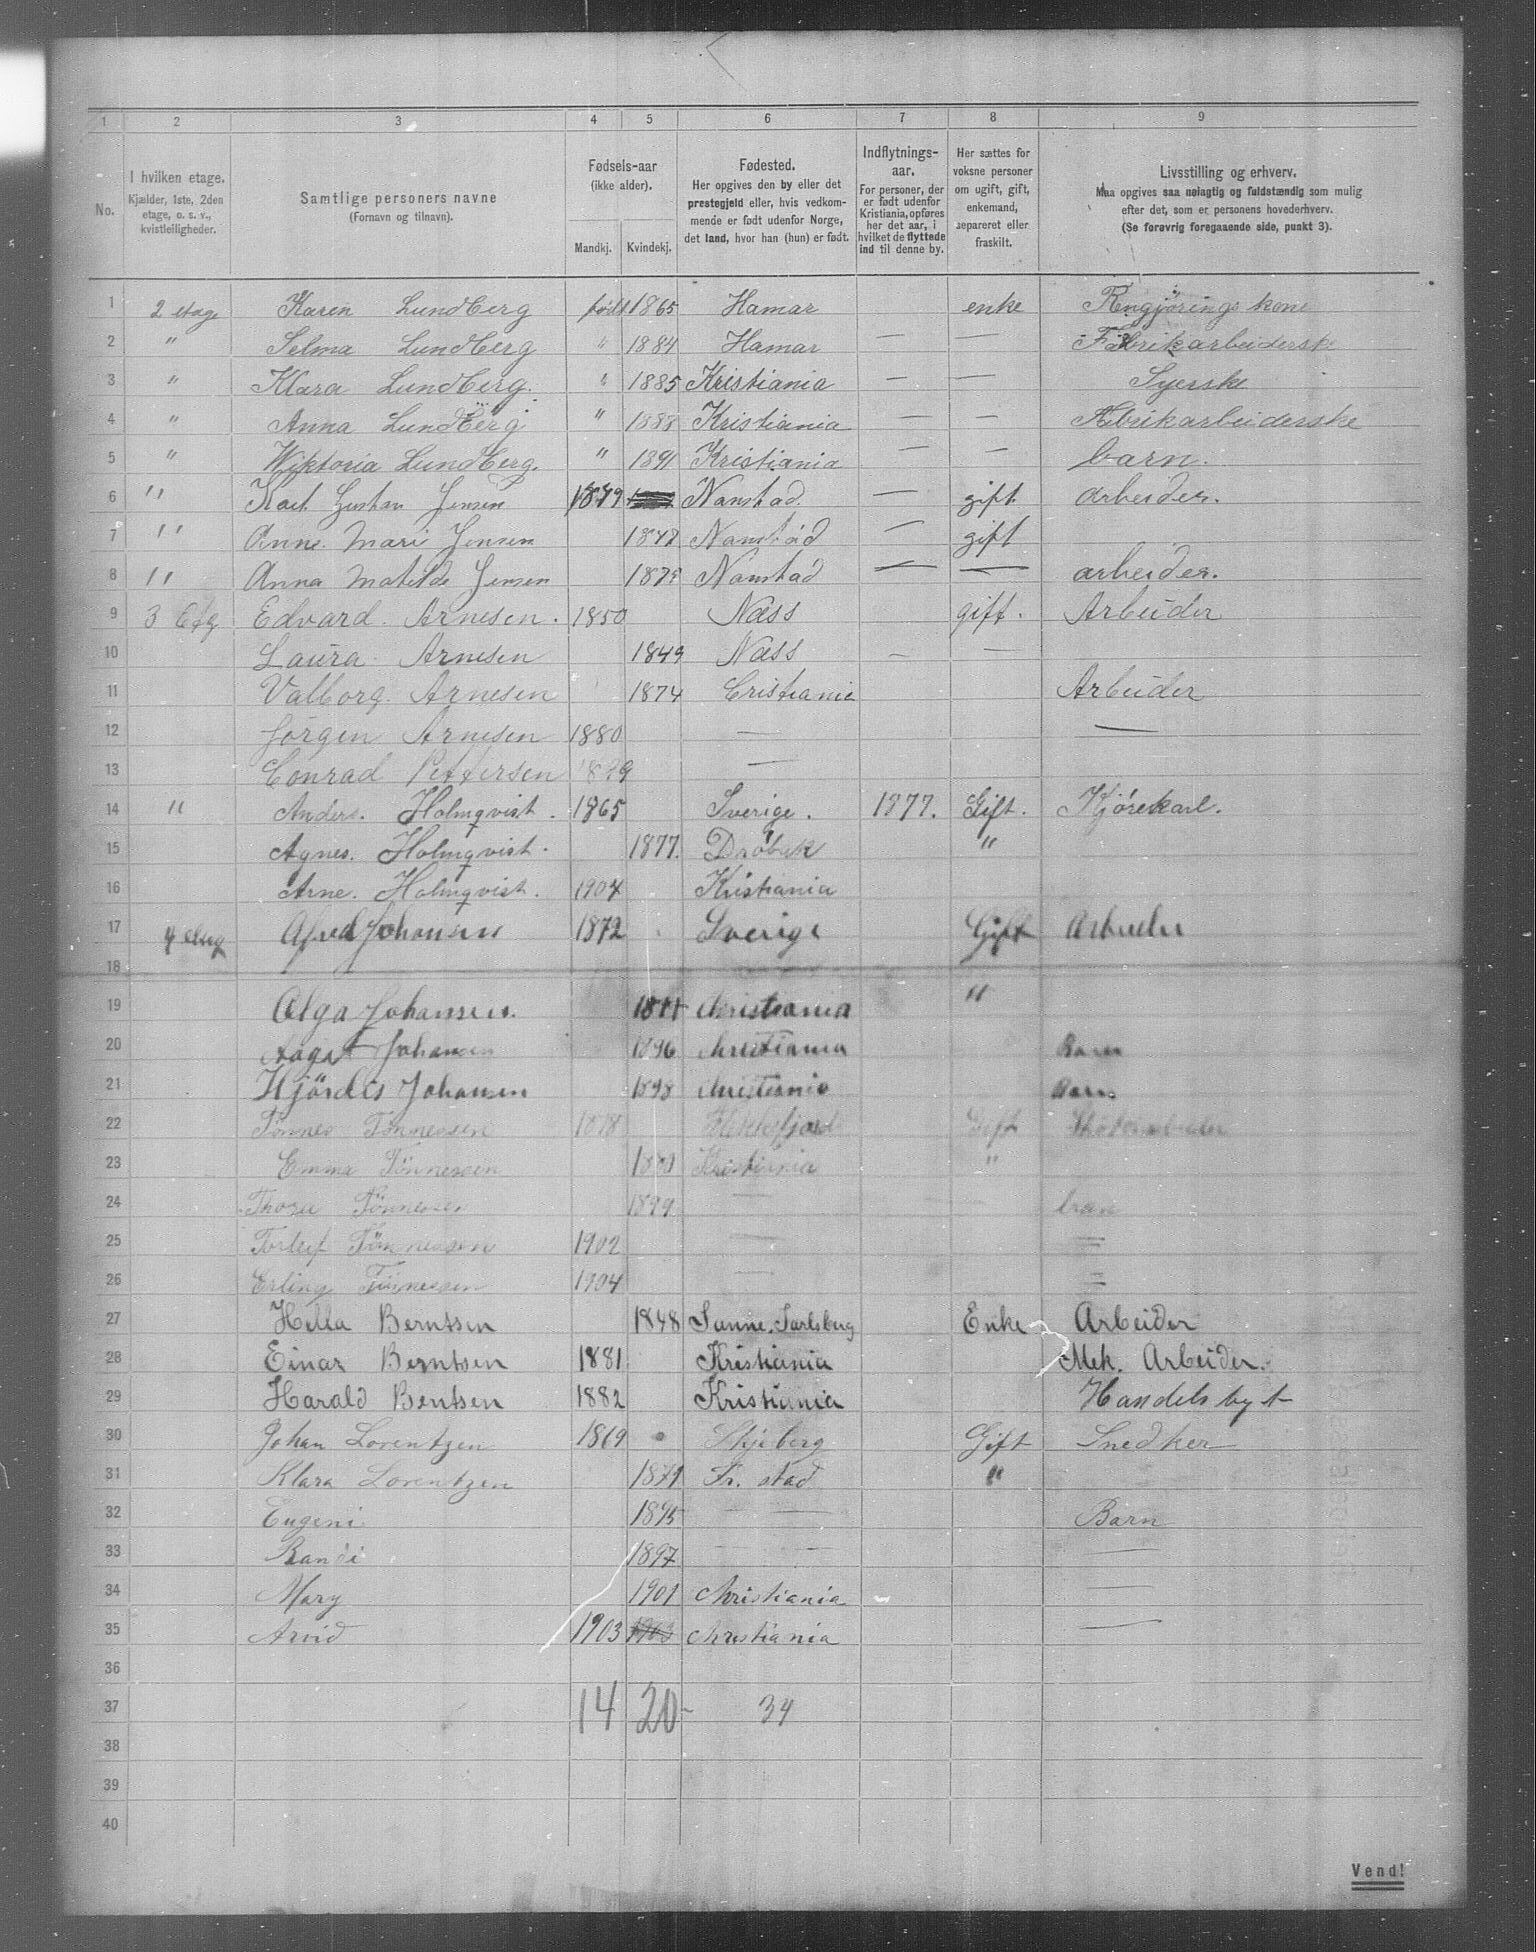 1 2 3 4 5 6 7 8 9
No.
I hvilken etage.
Kjælder, 1ste, 2den
etage, o. s. v.,
kvistleiligheder.
Samtlige personers navne
(Fornavn og tilnavn).
Fødsels-aar
(ikke alder).
Mandkj. Kvindekj.
Fødested.
Her opgives den by eller det
prestegjeld eller, hvis vedkom-
mende er født udenfor Norge,
det land, hvor han (hun) er født.
Indflytnings-
aar.
For personer, der
er født udenfor
Kristiania, opføres
her det aar, i
hvilket de flyttede
ind til denne by.
Her sættes for
voksne personer
om ugift, gift,
enkemand,
separeret eller
fraskilt.
Livsstilling og erhverv.
Maa opgives saa nøiagtig og fuldstændig som mulig
efter det, som er personens hovederhverv.
(Se forøvrig foregaaende side, punkt 3).
1 2 etage Karen Lundberg født 1865 Hamar enke Rengjørings kone
2 " Selma Lundberg " 1884 Hamar — — Fabrikarbeiderske
3 " Klara Lundberg. " 1885 Kristiania — — Syerske
4 " Anna Lundberg " 1888 Kristiania — — Fabrikarbeiderske
5 " Wiktoria Lundberg. " 1891 Kristiania — — barn.
6 " Karl Gustav Jensen 1849 Nanstad. — gift arbeider.
7 " Anne Mari Jensen 1848 Nanstad — gift
8 " Anna Matilde Jensen 1879 Nanstad — — arbeider.
9 3 Etg Edvard Arnesen. 1850 Næss gift. Arbeider
10 Laura Arnesen 1849 Næss — —
11 Valborg Arnesen 1874 Cristiania Arbeider
12 Jørgen Arnesen 1880 — —
13 Conrad Pettersen 1899 —
14 " Anders. Holmqvist. 1865 Sverige. 1877. Gift. Kjørekarl.
15 Agnes. Holmqvist. 1877. Drøbak "
16 Arne. Holmqvist. 1904 Kristiania
17 4 etag Alfred Johansen 1872 Sverige Gift Arbeider
18
19 Olga Johansen. Christiania "
20 Aagot Johansen 1896 Christiania Barn
21 Hjördis Johansen 1898 Christiania Barn
22 Tønnes Tønnessen 1878 Flekkefjord Gift
23 Emma Tönnessen Kristiania "
24 Thora Tönnessen 1899 — barn
25 Torleif Tönnessen 1902 — =
26 Erling Tönnessen 1904 — =
27 Hella Berntsen 1848 Sanne. Sarlsberg Enke Arbeider
28 Einar Berntsen 1881 Kristiania Mek. Arbeider.
29 Harald Bentsen 1882 Kristiania Handels byt
30 Johan Lorentzen 1869 Skjeberg Gift Snedker
31 Klara Lorentzen 1871 Fr. stad "
32 Eugeni 1895 — — Barn
33 Randi 1897 — — —
34 Mary 1901 Christiania —
35 Arvid 1903 1903 Christiania —
36
37 14 20 - 34
38
39
40
Vend!